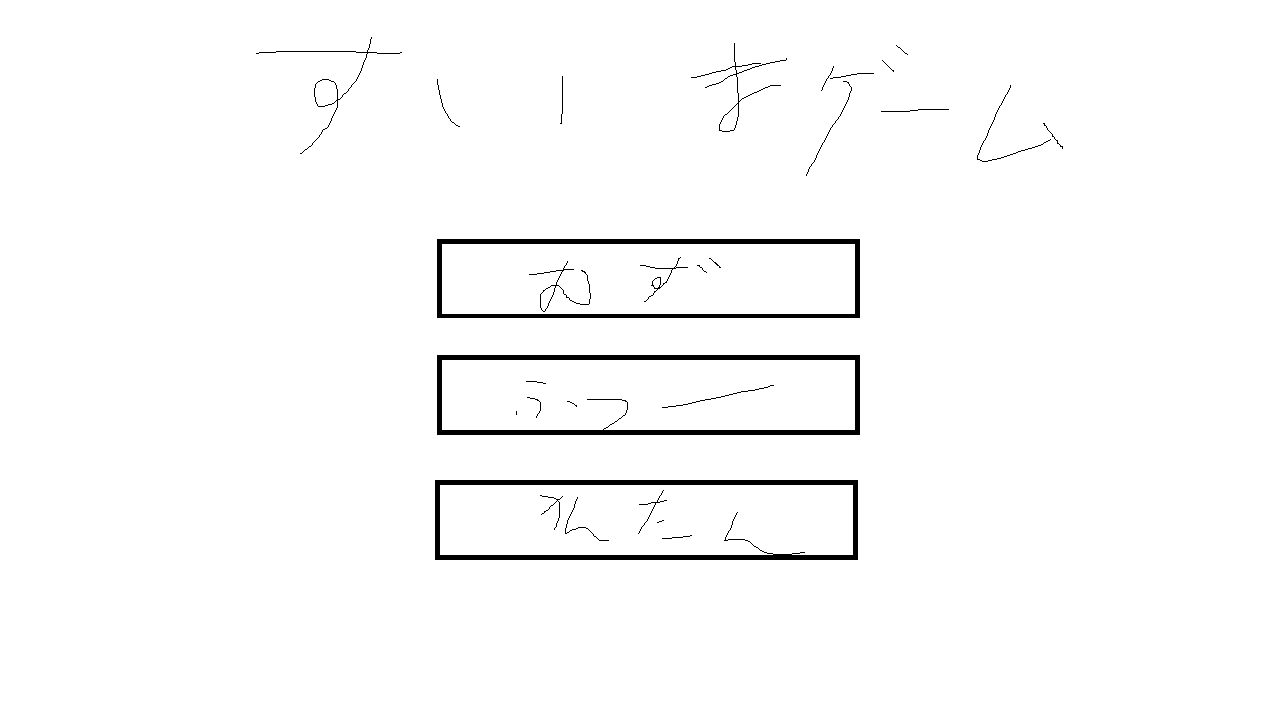 すいまゲーム
むず
ふつー
かんたん